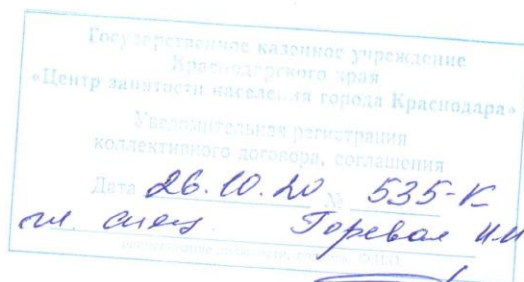 Государственное казенное учреждение
Краснодарского края
«Центр занятости населения города Краснодара»
Уведомительная регистрация
коллективного договора, соглашения
Дата 26.10.20 № 535-К
гл. спец. Горевая И.И